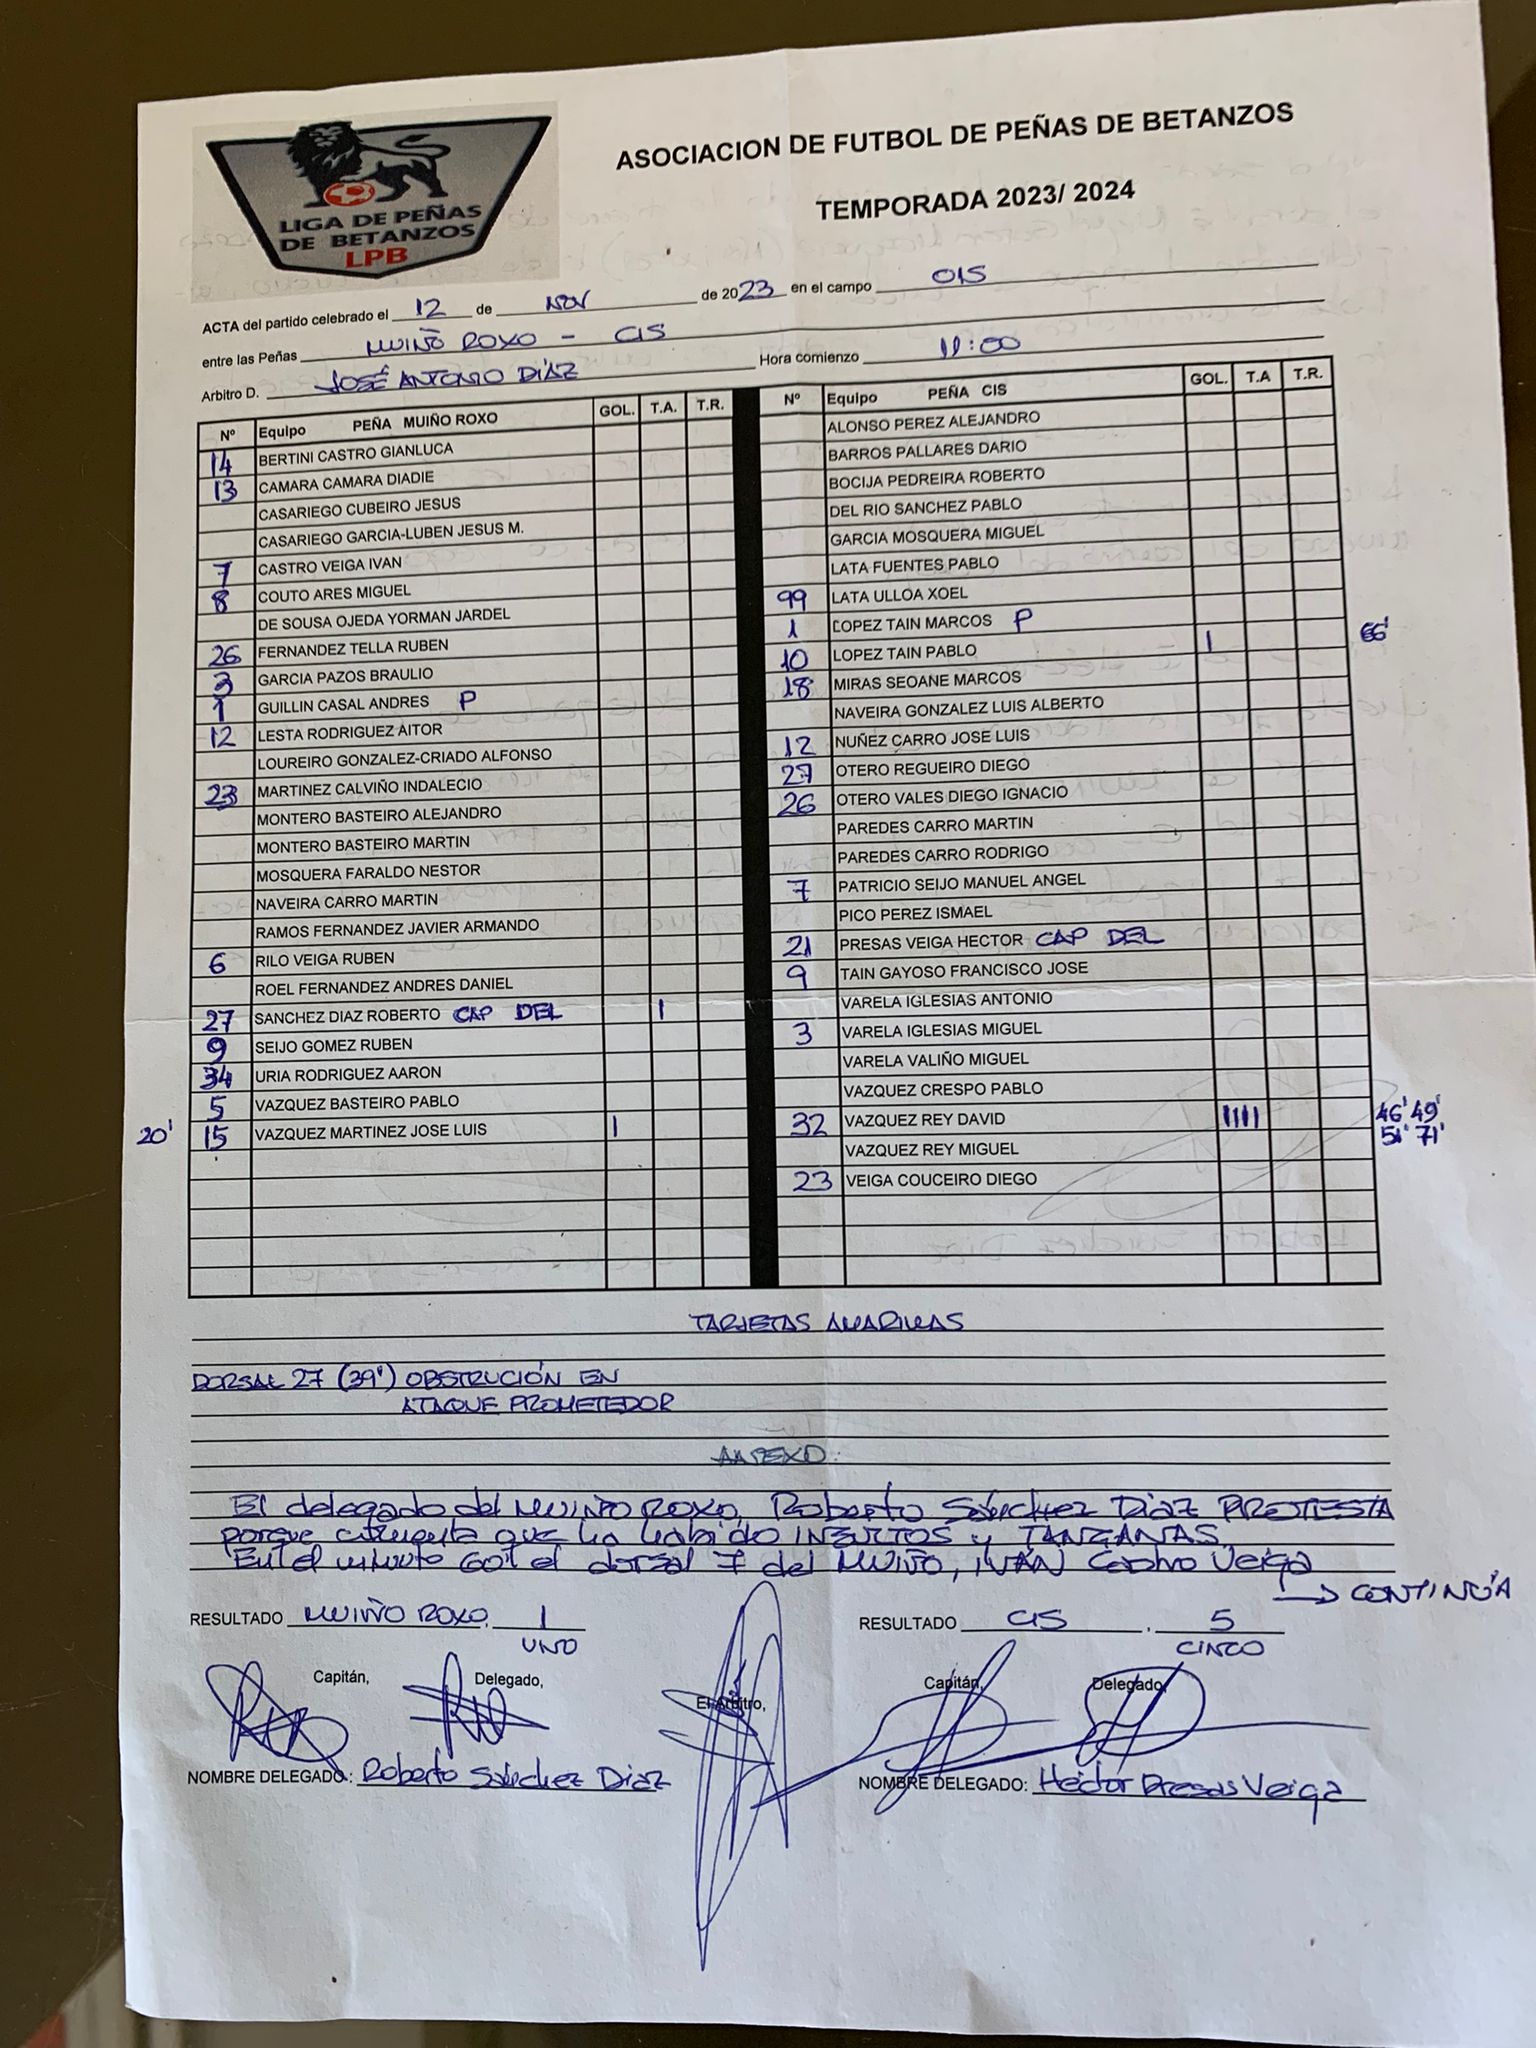 LIGA DE PEÑAS
DE BETANZOS
LPB
ASOCIACION DE FUTBOL DE PEÑAS DE BETANZOS
TEMPORADA 2023/ 2024
ACTA del partido celebrado el 12 de NOV de 2023 en el campo OIS
entre las Peñas MUIÑO ROXO - CIS
Arbitro D. JOSÉ ANTONIO DÍAZ Hora comienzo 11:00
Nº Equipo PEÑA MUIÑO ROXO GOL. T.A. T.R.
14 BERTINI CASTRO GIANLUCA
13 CAMARA CAMARA DIADIE
CASARIEGO CUBEIRO JESUS
CASARIEGO GARCIA-LUBEN JESUS M.
7 CASTRO VEIGA IVAN
8 COUTO ARES MIGUEL
DE SOUSA OJEDA YORMAN JARDEL
26 FERNANDEZ TELLA RUBEN
3 GARCIA PAZOS BRAULIO
1 GUILLIN CASAL ANDRES P
12 LESTA RODRIGUEZ AITOR
LOUREIRO GONZALEZ-CRIADO ALFONSO
23 MARTINEZ CALVIÑO INDALECIO
MONTERO BASTEIRO ALEJANDRO
MONTERO BASTEIRO MARTIN
MOSQUERA FARALDO NESTOR
NAVEIRA CARRO MARTIN
RAMOS FERNANDEZ JAVIER ARMANDO
6 RILO VEIGA RUBEN
ROEL FERNANDEZ ANDRES DANIEL
27 SANCHEZ DIAZ ROBERTO CAP DEL I
9 SEIJO GOMEZ RUBEN
34 URIA RODRIGUEZ AARON
5 VAZQUEZ BASTEIRO PABLO
20' 15 VAZQUEZ MARTINEZ JOSE LUIS I
Nº Equipo PEÑA CIS GOL. T.A T.R.
ALONSO PEREZ ALEJANDRO
BARROS PALLARES DARIO
BOCIJA PEDREIRA ROBERTO
DEL RIO SANCHEZ PABLO
GARCIA MOSQUERA MIGUEL
LATA FUENTES PABLO
99 LATA ULLOA XOEL
1 LOPEZ TAIN MARCOS P
10 LOPEZ TAIN PABLO I 66'
18 MIRAS SEOANE MARCOS
NAVEIRA GONZALEZ LUIS ALBERTO
12 NUÑEZ CARRO JOSE LUIS
27 OTERO REGUEIRO DIEGO
26 OTERO VALES DIEGO IGNACIO
PAREDES CARRO MARTIN
PAREDES CARRO RODRIGO
7 PATRICIO SEIJO MANUEL ANGEL
PICO PEREZ ISMAEL
21 PRESAS VEIGA HECTOR CAP DEL
9 TAIN GAYOSO FRANCISCO JOSE
VARELA IGLESIAS ANTONIO
3 VARELA IGLESIAS MIGUEL
VARELA VALIÑO MIGUEL
VAZQUEZ CRESPO PABLO
32 VAZQUEZ REY DAVID IIII 46' 49'
51' 71'
VAZQUEZ REY MIGUEL
23 VEIGA COUCEIRO DIEGO
TARJETAS AMARILLAS
DORSAL 27 (39') OBSTRUCIÓN EN
ATAQUE PROMETEDOR
ANEXO:
El delegado del MUIÑO ROXO, Roberto Sánchez Díaz PROTESTA
porque comenta que ha habido INSULTOS y TANGANAS.
En el minuto 60' el dorsal 7 del MUIÑO, IVÁN Castro Veiga
→ CONTINÚA
RESULTADO MUIÑO ROXO, 1 RESULTADO CIS , 5
UNO CINCO
Capitán, Delegado, El Arbitro, Capitán, Delegado,
NOMBRE DELEGADO: Roberto Sánchez Díaz NOMBRE DELEGADO: Héctor Presas Veiga